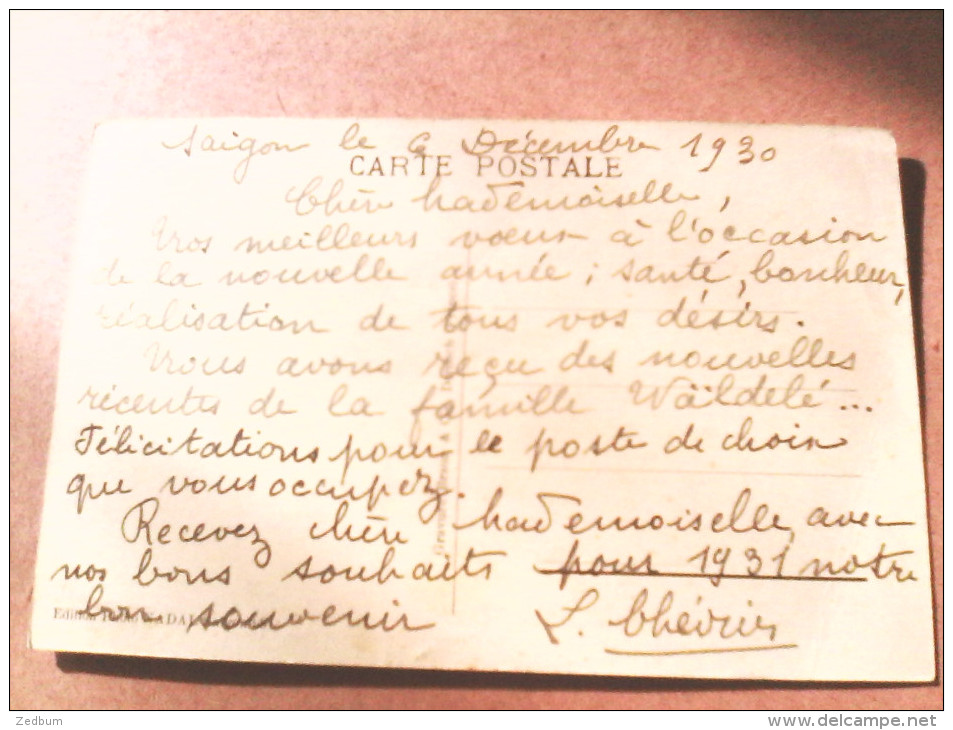 Saigon le 6 Décembre 1930
CARTE POSTALE
Chère Mademoiselle,
Nos meilleurs voeux à l'occasion
de la nouvelle année ; santé, bonheur,
réalisation de tous vos désirs.
Nous avons reçu des nouvelles
récentes de la famille Wäldelé...
Félicitations pour le poste de choix
que vous occupez.
Recevez chère Mademoiselle, avec
nos bons souhaits pour 1931 notre
bon souvenir
L. Chévrier
Edition NADAL
Zedbum
www.delcampe.net